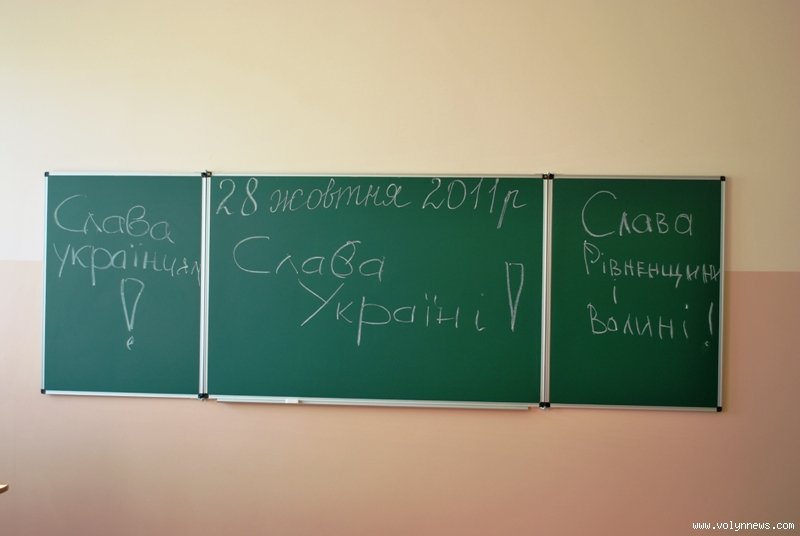 Слава
українцям
!
28 жовтня 2011р
Слава
Україні !
Слава
Рівненщини
і
Волині !
www.volynnews.com